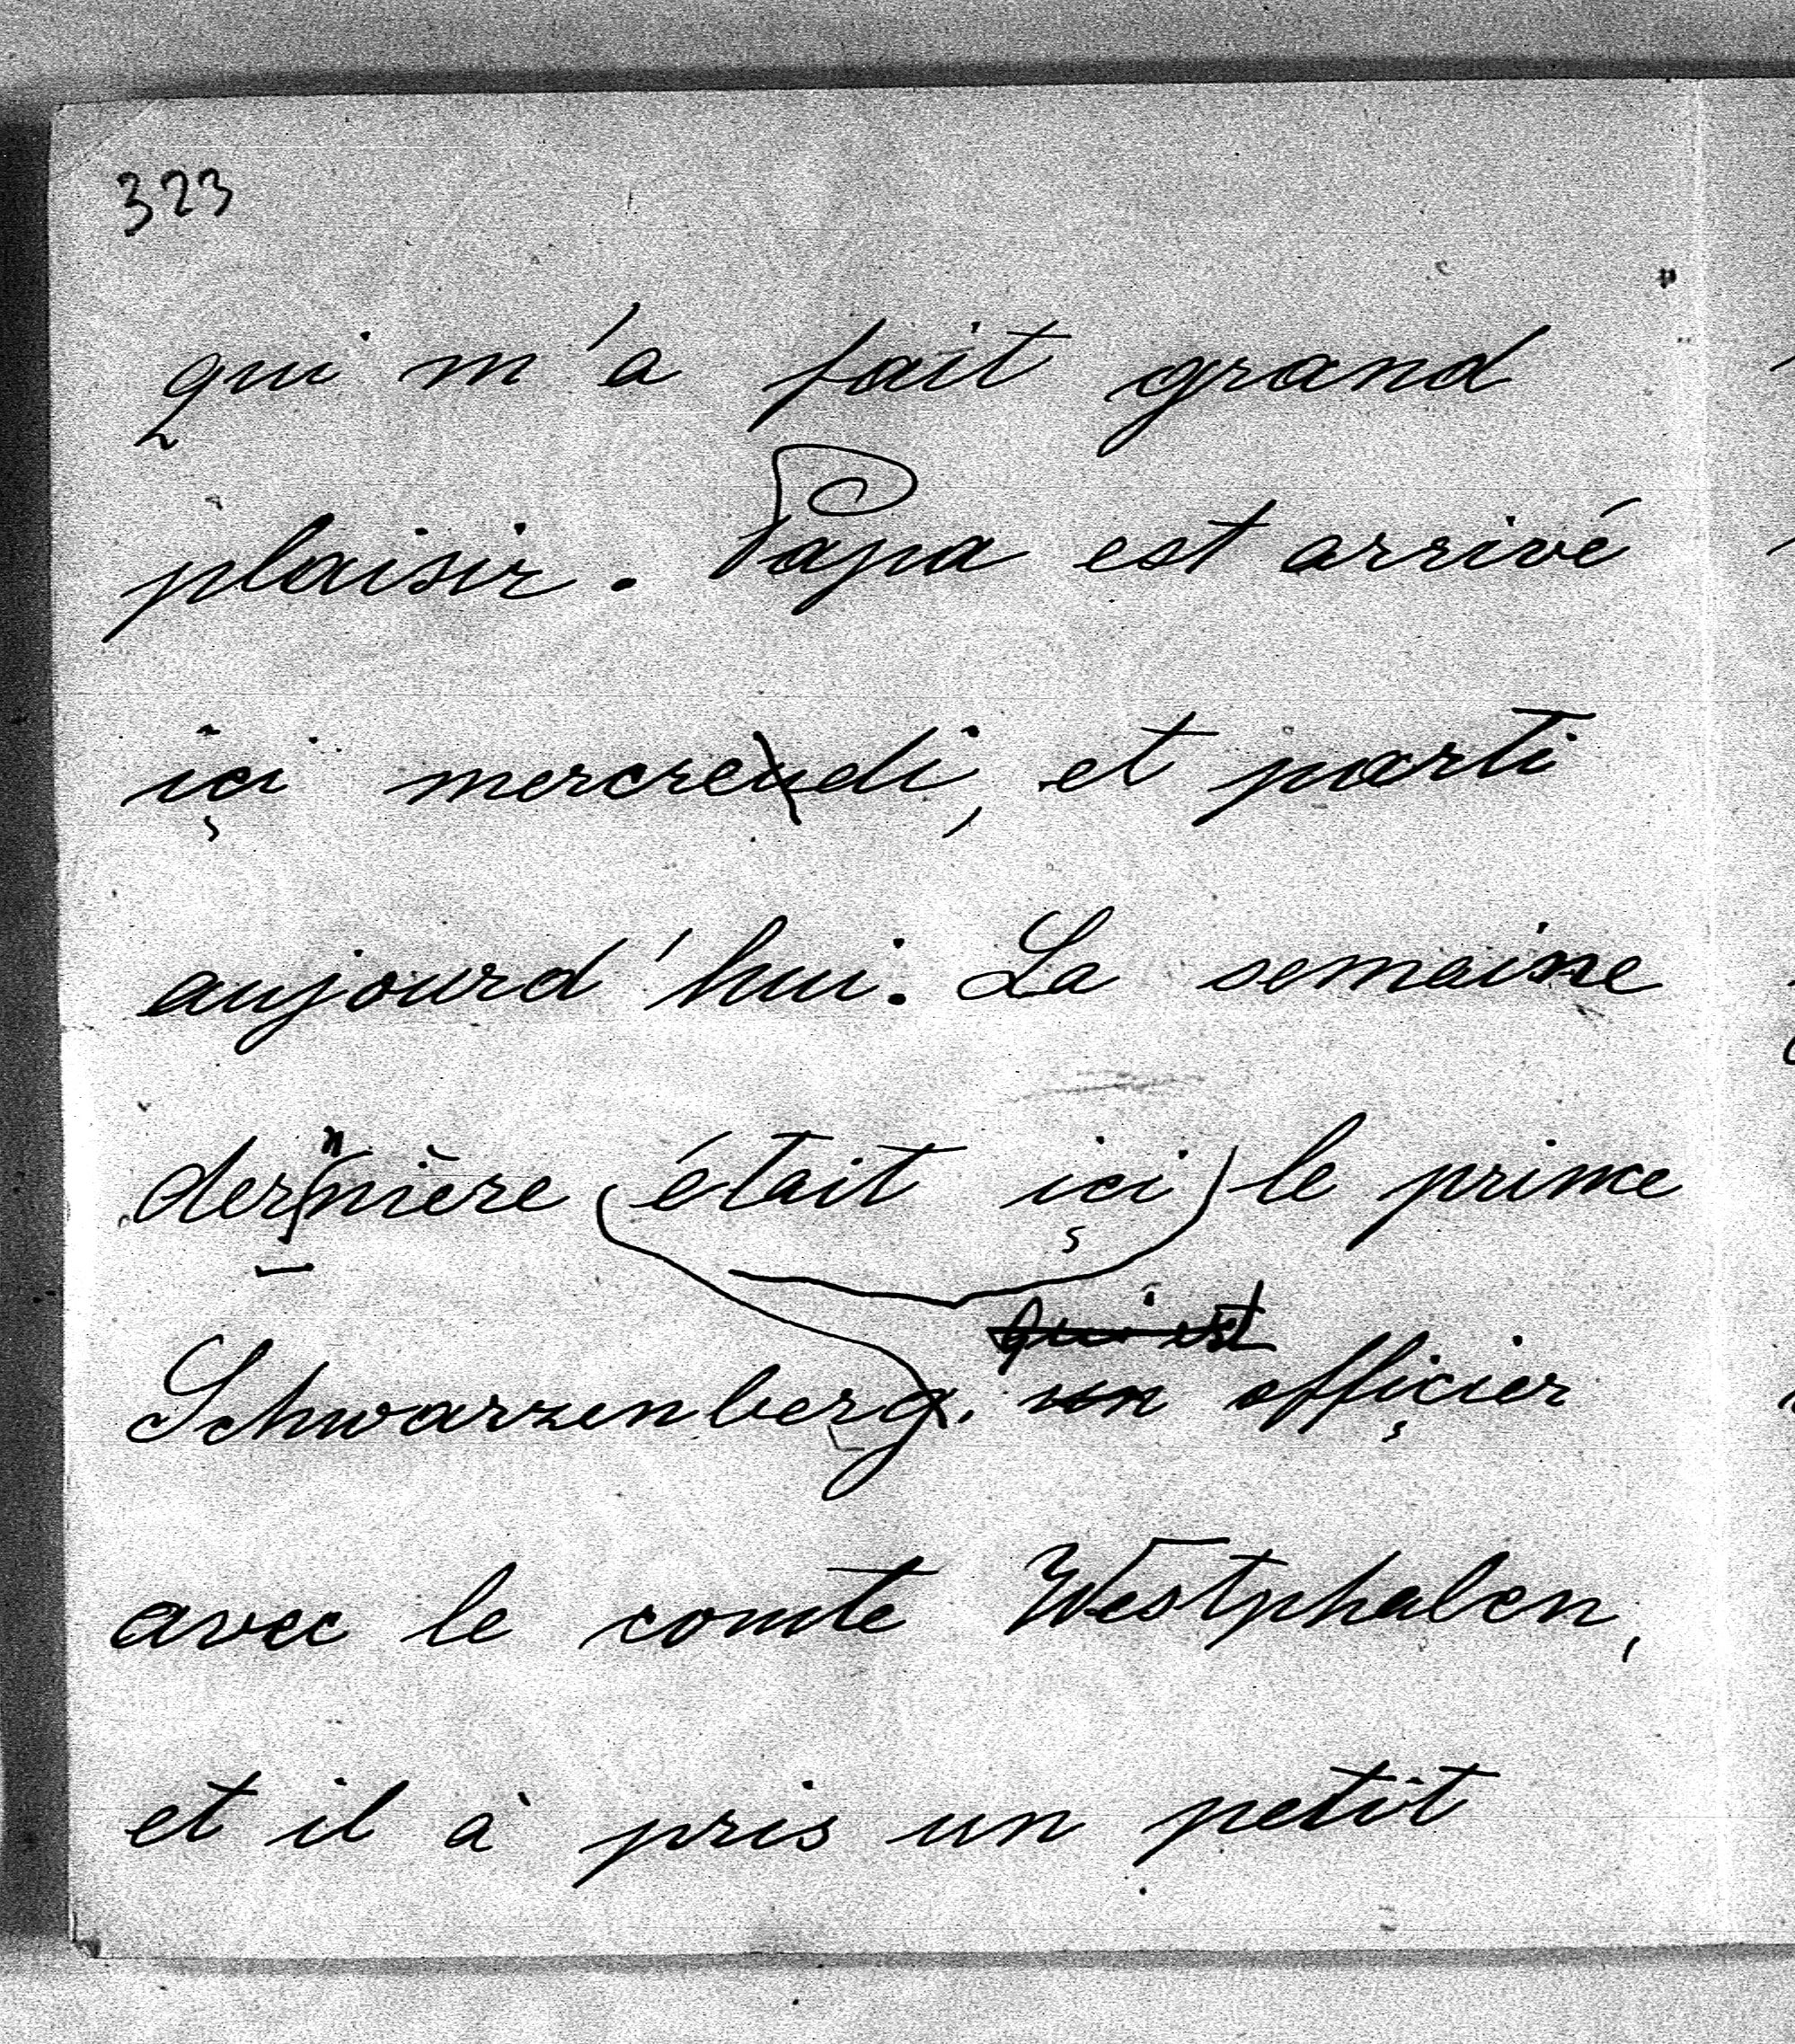 323
qui m'a fait grand
plaisir. Papa est arrivé
içi mercreudi, et parti
aujourd'hui. La semaine
dernière était içi le prince
qui est
Schwarzenberg. un offiçier
avec le comte Westphalen,
et il à pris un petit